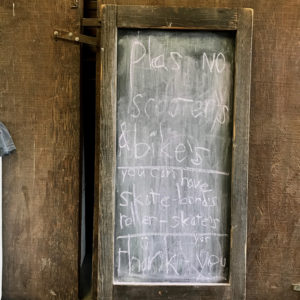 Pleas NO
scooter's
& bike's
you can have
skate-bords
roller-skate's
For
Thank-you